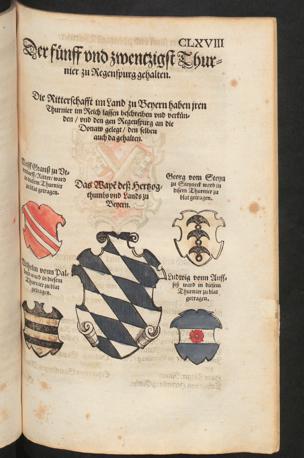 CLXVIII
Der fünff vnd zwentzigst Thur-
nier zu Regenspurg gehalten.
Die Ritterschafft im Land zu Beyern haben jren
Thurnier im Reich lassen beschreiben vnd verkün-
den / vnd den gen Regenspurg an die
Donaw gelegt / den selben
auch da gehalten.
zu
Ritter / ward
in disem Thurnier
zu blat getragen.
Das Wapē deß Hertzog-
thumbs vnd Lands zu
Beyern.
Georg vom Steyn
zu ward in
disem Thurnier zu
blat getragen.
vonn
ward in disem
Thurnier zu blat
getragen.
Ludwig vonn Auff-
seß ward in disem
Thurnier zu blat
getragen.